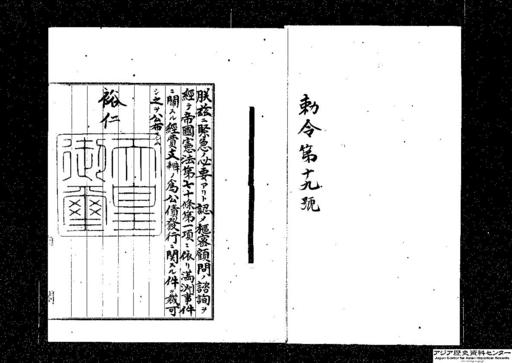 勅令第十九號
朕玆ニ緊急ノ必要アリト認メ樞密顧問ノ諮詢ヲ
經テ帝國憲法第七十條第一項ニ依リ滿洲事件
ニ關スル經費支辨ノ爲公債發行ニ關スル件ヲ裁可
シ之ヲ公布セシム
裕仁
天皇
御璽
アジア歴史資料センター
Japan Center for Asian Historical Records